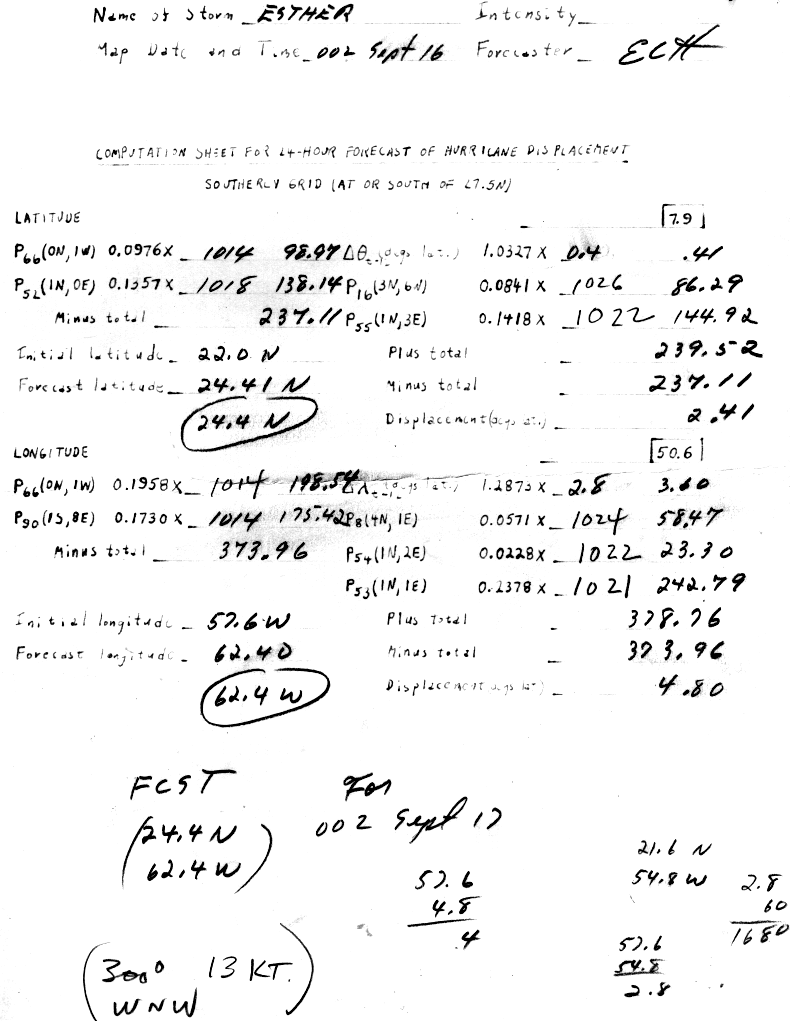 Name of Storm ESTHER Intensity
Map Date and Time 00Z Sept 16 Forecaster ECH
COMPUTATION SHEET FOR 24-HOUR FORECAST OF HURRICANE DISPLACEMENT
SOUTHERLY GRID (AT OR SOUTH OF 27.5N)
LATITUDE 7.9
P66(0N, 1W) 0.0976 X 1014 98.97 Δθ (degs lat.) 1.0327 X 0.4 .41
P52(1N, 0E) 0.1357 X 1018 138.14 P16(3N, 6W) 0.0841 X 1026 86.29
Minus total 237.11 P55(1N, 3E) 0.1418 X 1022 144.92
Initial latitude 22.0 N Plus total 239.52
Forecast latitude 24.41 N Minus total 237.11
24.4 N Displacement (degs lat.) 2.41
LONGITUDE 50.6
P66(0N, 1W) 0.1958 X 1014 198.54 Δλ (degs lat.) 1.2873 X 2.8 3.60
P90(1S, 8E) 0.1730 X 1014 175.42 P8(4N, 1E) 0.0571 X 1024 58.47
Minus total 373.96 P54(1N, 2E) 0.0228 X 1022 23.30
P53(1N, 1E) 0.2378 X 1021 242.79
Initial longitude 57.6 W Plus total 378.76
Forecast longitude 62.40 Minus total 373.96
62.4 W Displacement (degs lat) 4.80
FCST For
24.4 N 00Z Sept 17
62.4 W
21.6 N
57.6 54.8 W 2.8
4.8 60
4 57.6 1680
54.8
300° 13 KT. 2.8
WNW